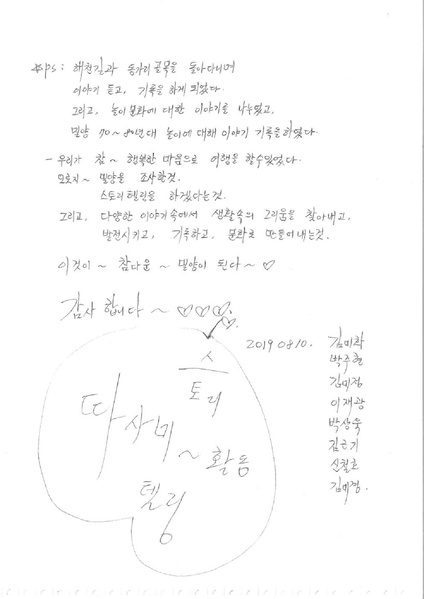 #ps : 해천길과 동가리 골목을 돌아다니며
이야기 듣고, 기록을 하게 되었다.
그리고, 놀이문화에 대한 이야기를 나누었고,
밀양 70~80년대 놀이에 대해 이야기 기록을 하였다.
- 우리가 참~ 행복한 마음으로 여행을 할수있었다.
모로지~ 밀양을 조사한것.
스토리텔링을 하겠다는것.
그리고, 다양한 이야기속에서 생활속의 그리움을 찾아내고,
발전시키고, 기록하고, 문화로 만들어내는것.
이것이~ 참다운~ 밀양이 된다~ ♡
감사합니다~ ♡♡♡.
20190810.
김미라
박주현
김미정
이재광
박상욱
김근기
신철호
김미정.
스
토리
따사미
~ 활동
텔링